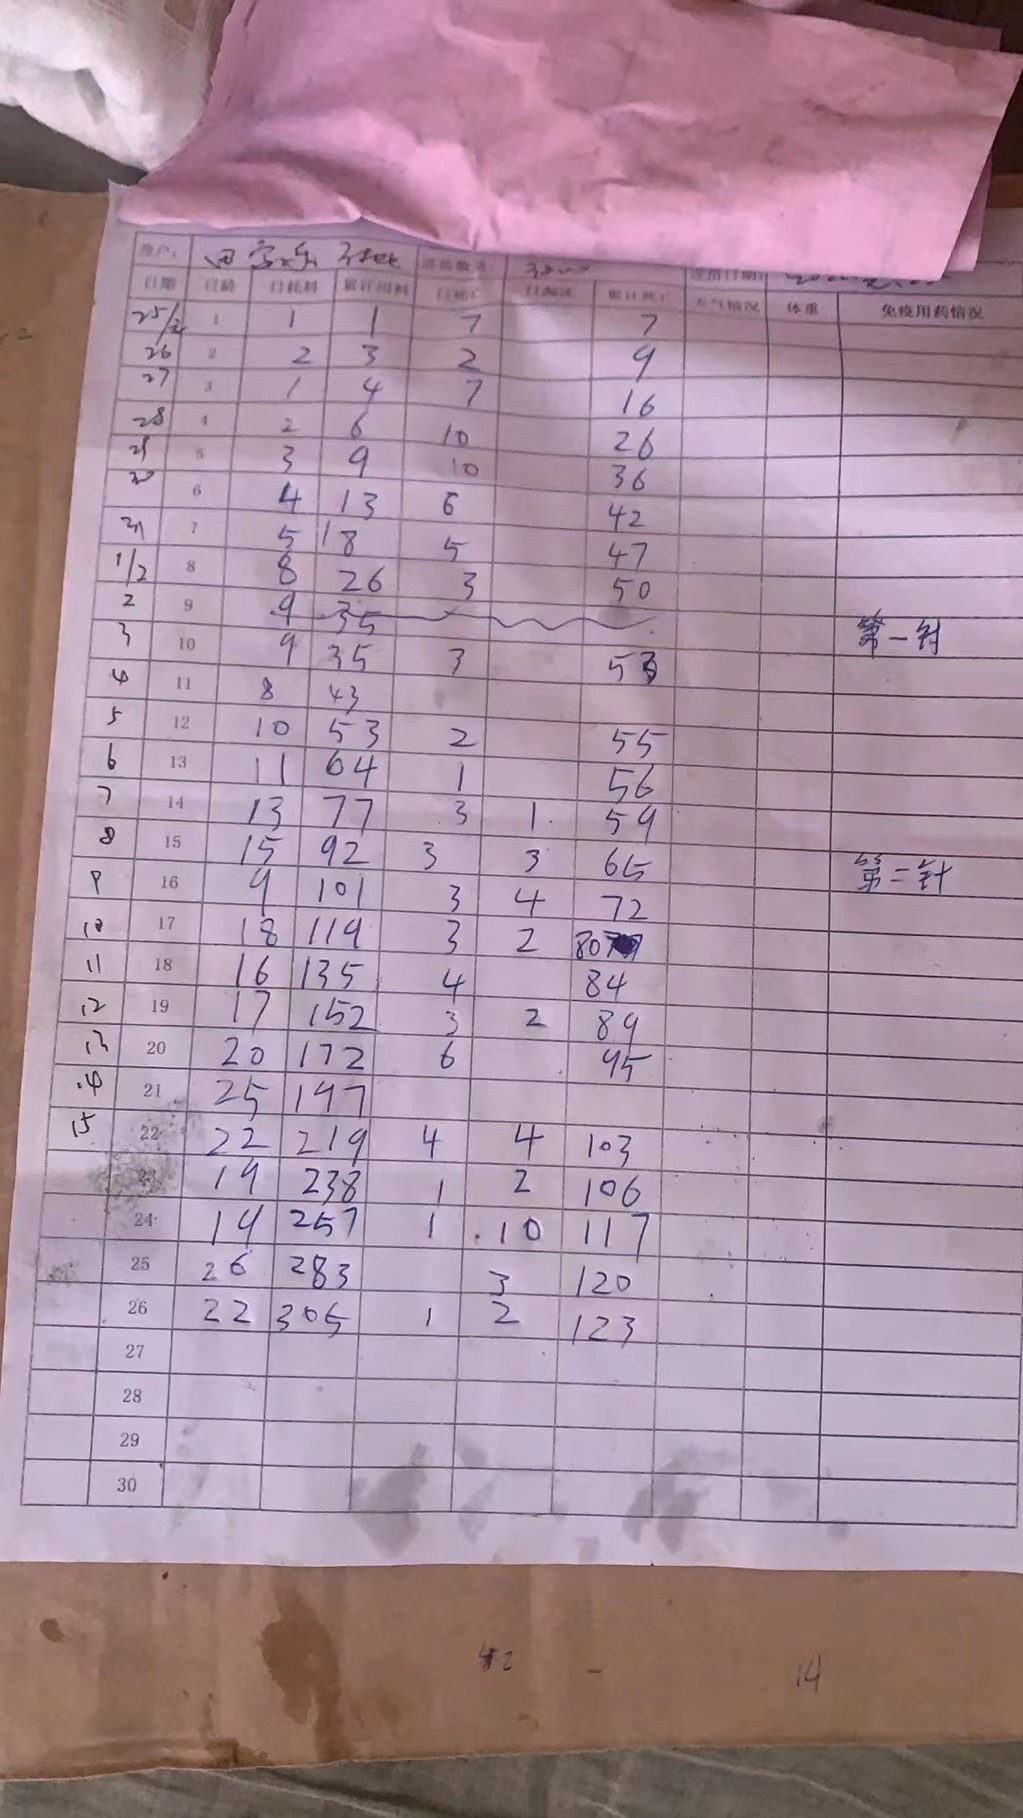 日期 日龄 日耗料 累计用料 日死亡 日淘汰 累计死亡 天气情况 体重 免疫用药情况
25/ 1 1 1 7 7
26 2 2 3 2 9
27 3 1 4 7 16
28 4 2 6 10 26
29 5 3 9 10 36
30 6 4 13 6 42
31 7 5 18 5 47
1/2 8 8 26 3 50
2 9 9 35 第一针
3 10 9 35 3 53
4 11 8 43
5 12 10 53 2 55
6 13 11 64 1 56
7 14 13 77 3 1 59
8 15 15 92 3 3 65 第二针
9 16 9 101 3 4 72
10 17 18 119 3 2 80
11 18 16 135 4 84
12 19 17 152 3 2 89
13 20 20 172 6 95
14 21 25 197
15 22 22 219 4 4 103
23 19 238 1 2 106
24 19 257 1 10 117
25 26 283 3 120
26 22 305 1 2 123
27
28
29
30
14